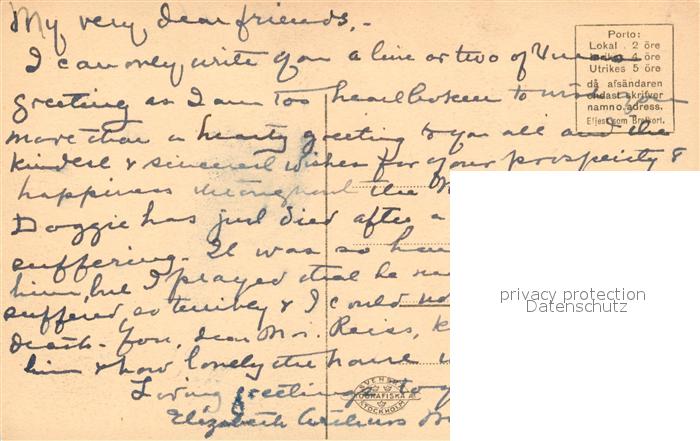 My very dear friends, -
I can only write you a line or two of
greeting as I am too heartbroken to wish you
more than a hearty greeting to you all and the
kindest & sincerest wishes for your prosperity &
happiness throughout the
Doggie has just died after a
suffering. It was so
him, but I prayed that he
suffered so terribly & I could not
death - You, dear Mrs. Reiss,
him & how lonely the house
Loving greetings to
Elizabeth
Porto:
Lokal 2 öre
Inrikes 4 öre
Utrikes 5 öre
då afsändaren
endast skrifver
namn o. adress.
Eljest som Brefkort.
SVENSKA
LITOGRAFISKA AB
STOCKHOLM
privacy protection
Datenschutz